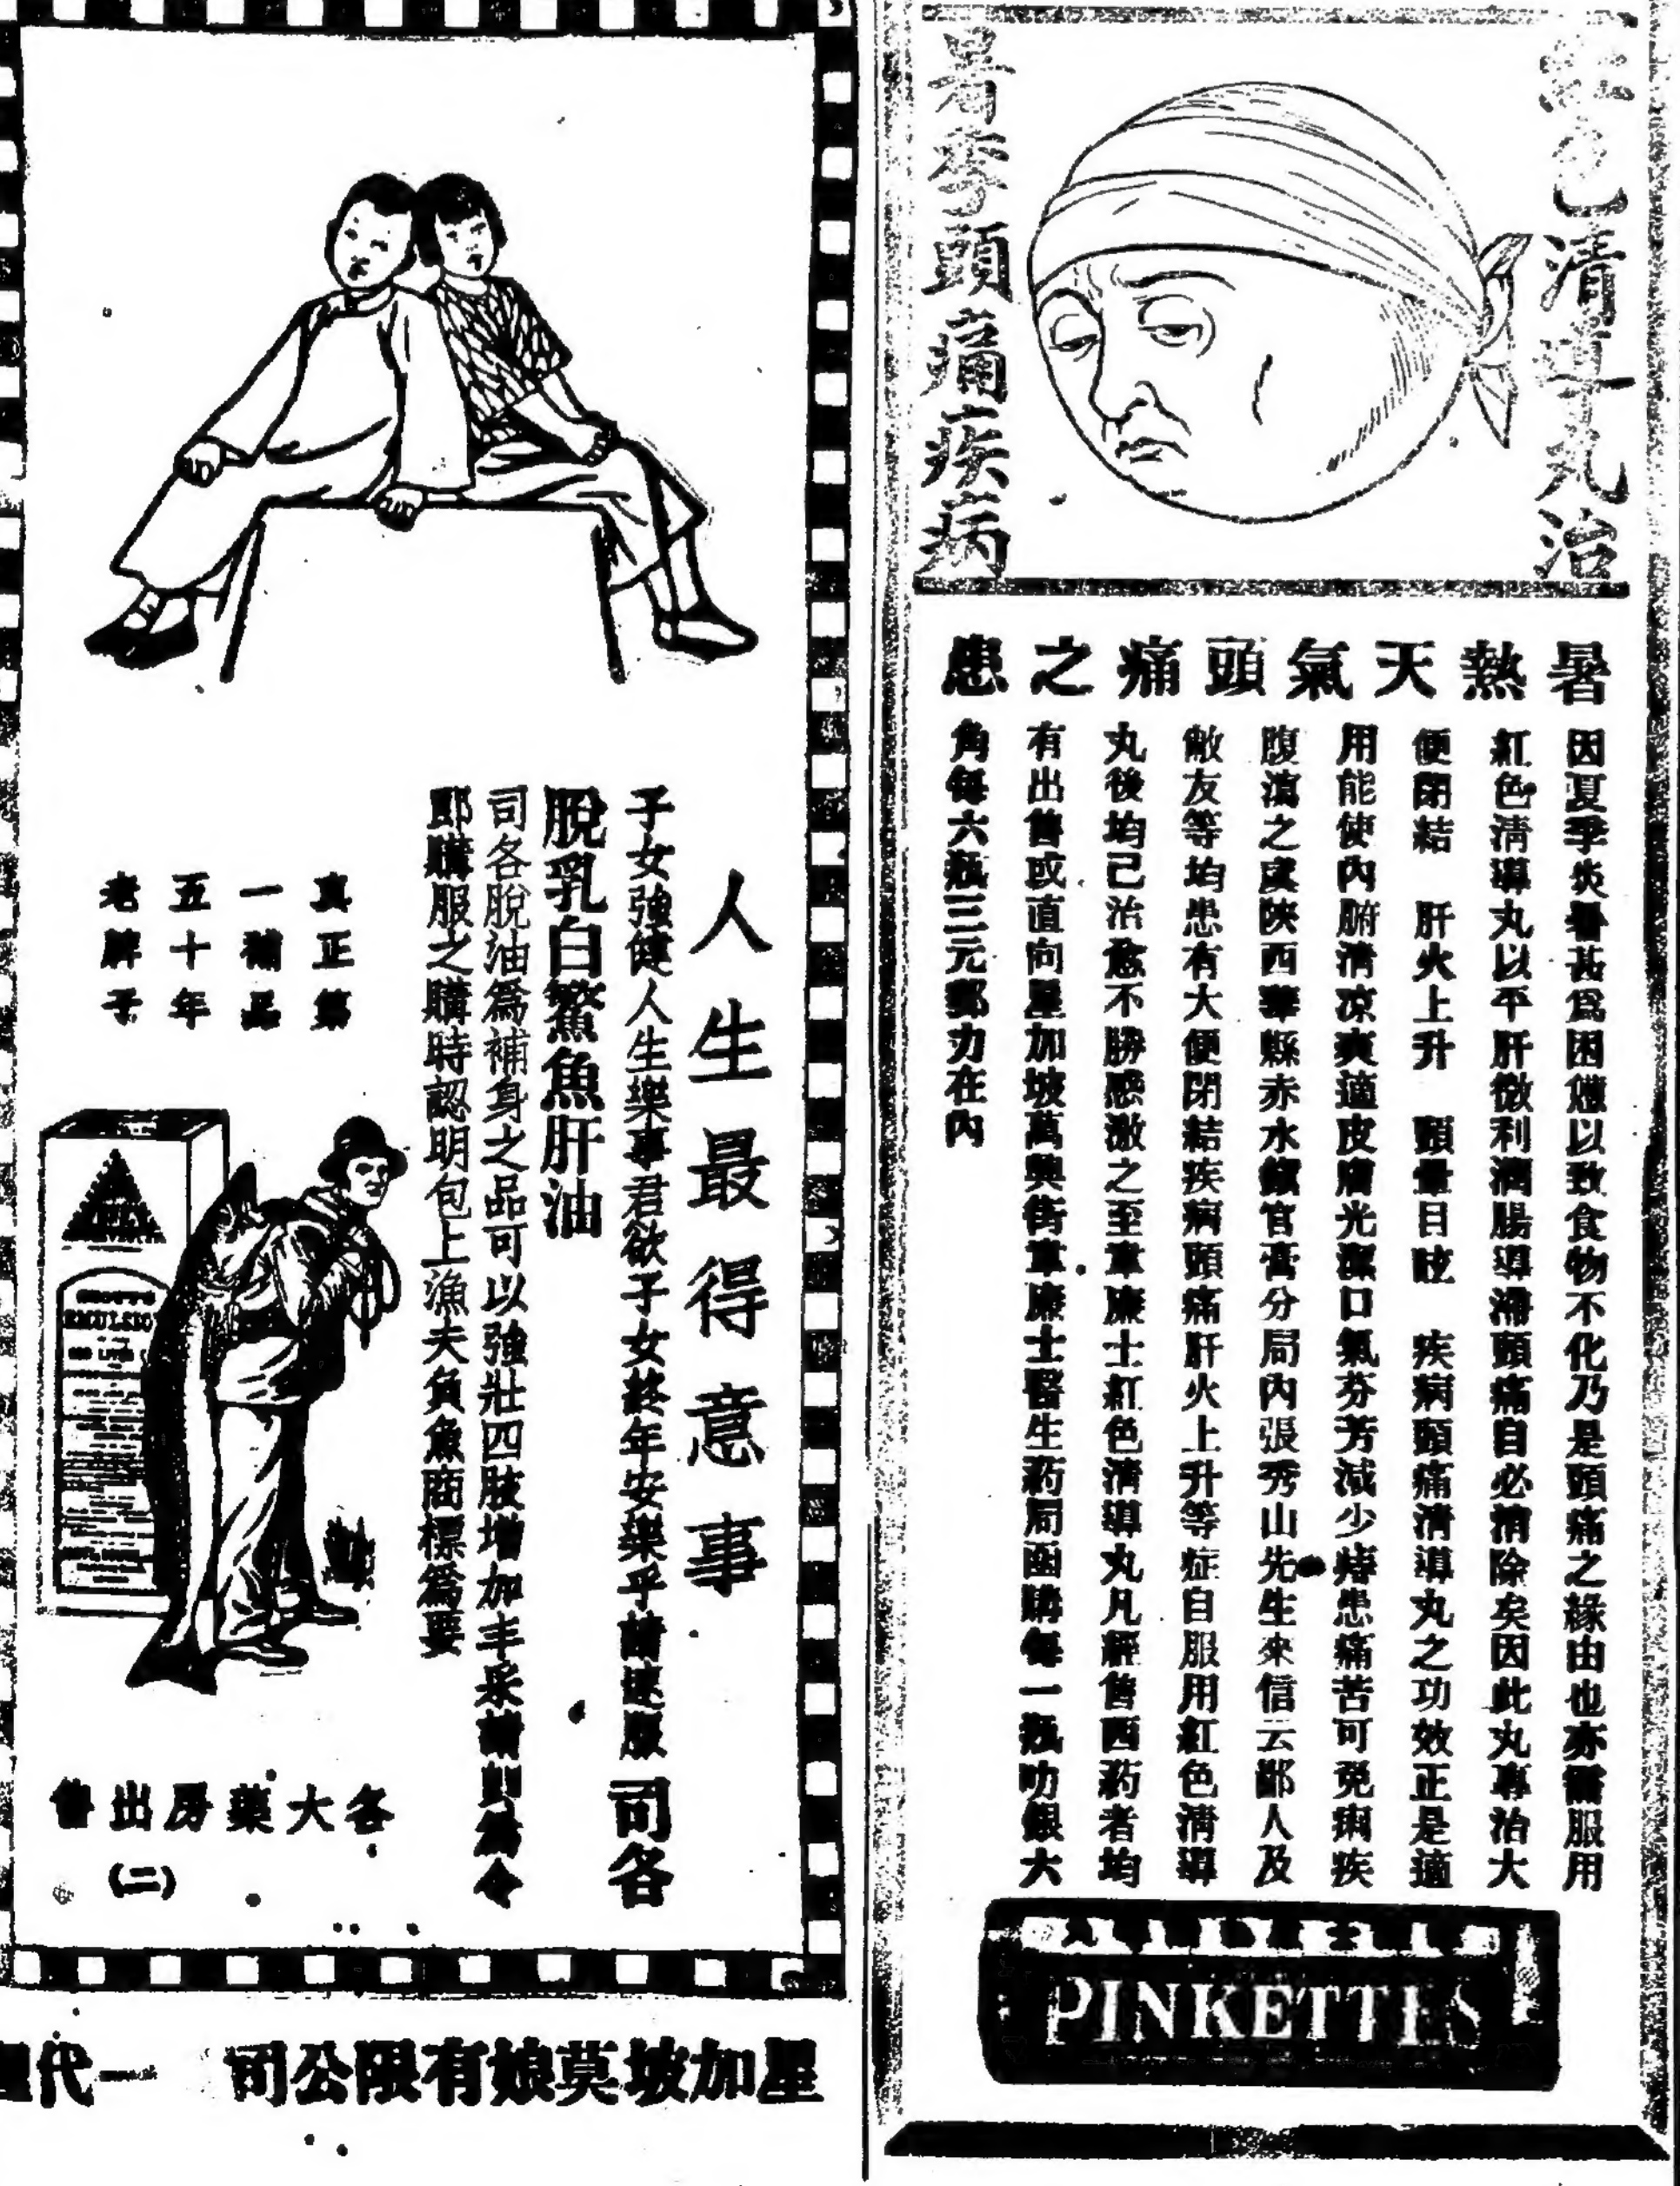 紅色清導丸治
暑季頭痛疾病
暑熱天氣頭痛之患
因夏季炎暑甚爲困憊以致食物不化乃是頭痛之緣由也亦需服用
紅色淸導丸以平肝微利潤腸導滯頭痛自必消除矣因此丸專治大
便閉結 肝火上升 頭暈目眩 疾病頭痛淸導丸之功效正是適
用能使內腑淸凉爽適皮膚光潔口氣芬芳減少痔患痛苦可免痢疾
腹瀉之虞陜西華縣赤水鎭官膏分局內張秀山先生來信云鄙人及
敝友等均患有大便閉結疾病頭痛肝火上升等症自服用紅色淸導
丸後均已治愈不勝感激之至韋廉士紅色淸導丸凡經售西葯者均
有出售或直向星加坡萬興街韋廉士醫生葯局函購每一瓶叻銀大
角每六瓶三元郵力在內
PINKETTES
人生最得意事
子女強健人生樂事君欲子女終年安樂乎請速服 司各
脫乳白鰵魚肝油
司各脫油爲補身之品可以強壯四肢增加丰采請卽爲令
郎購服之購時認明包上漁夫負魚商標爲要
真正第
一補品
五十年
老牌子
EMULSIO
COD LIVER
各大藥房出售
(二)
星加坡莫娘有限公司 一代理